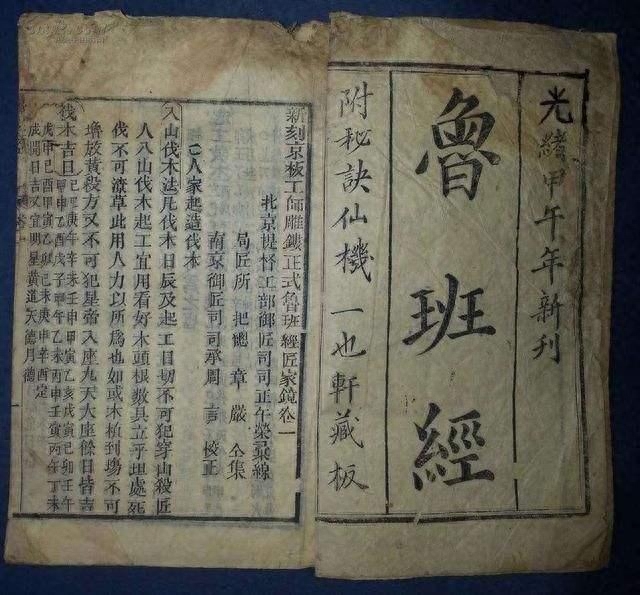 光緒甲午年新刊
魯班經
附秘訣仙機 一也軒藏板
新刻京板工師雕鏤正式魯班經匠家鏡卷一
北京提督工部御匠司司正午榮彙線
局匠所把總章嚴仝集
南京御匠司司承周言校正
人家起造伐木
入山伐木法凡伐木日辰及起工日切不可犯穿山殺匠
人入山伐木起工宜用看好木頭根數具立平坦處死
伐不可潦草此用人力以所為也如或木植到場不可
堆放黃殺方又不可犯皇帝入座九天大座餘日皆吉
伐木吉日
己巳庚午辛未壬申甲寅乙亥戊寅己卯壬午
甲申乙酉戊子甲午乙未丙申壬寅丙午丁未
戊申己酉甲寅乙卯己未庚申辛酉定
成開日吉又宜明星黃道天德月德